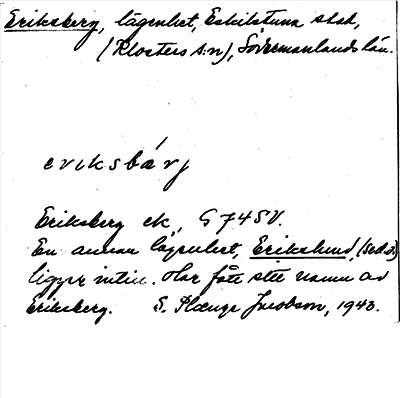 Eriksberg, lägenhet, Eskilstuna stad,
(Klosters s:n), Södermanlands län.
eriksbärj
Eriksberg ek, G 74 SV.
En annan lägenhet, Erikslund, (se d.o.)
ligger intill. Har fått sitt namn av
Eriksberg. S. Plænge Jacobson, 1943.